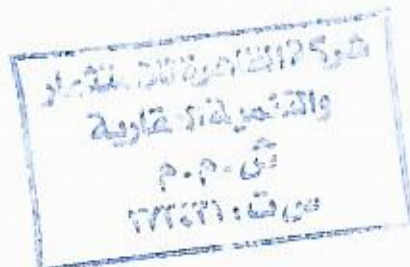 شركة القاهرة للاستثمار
والتنمية العقارية
ش.م.م
س.ت: